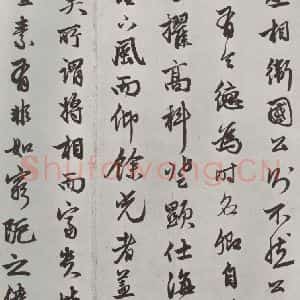 相衛國公則不然公
有令德為時名卿自
擢高科登顯仕海
下風而仰餘光者蓋
矣所謂將相而富貴皆
素有非如窮阨之
Shufawang.CN